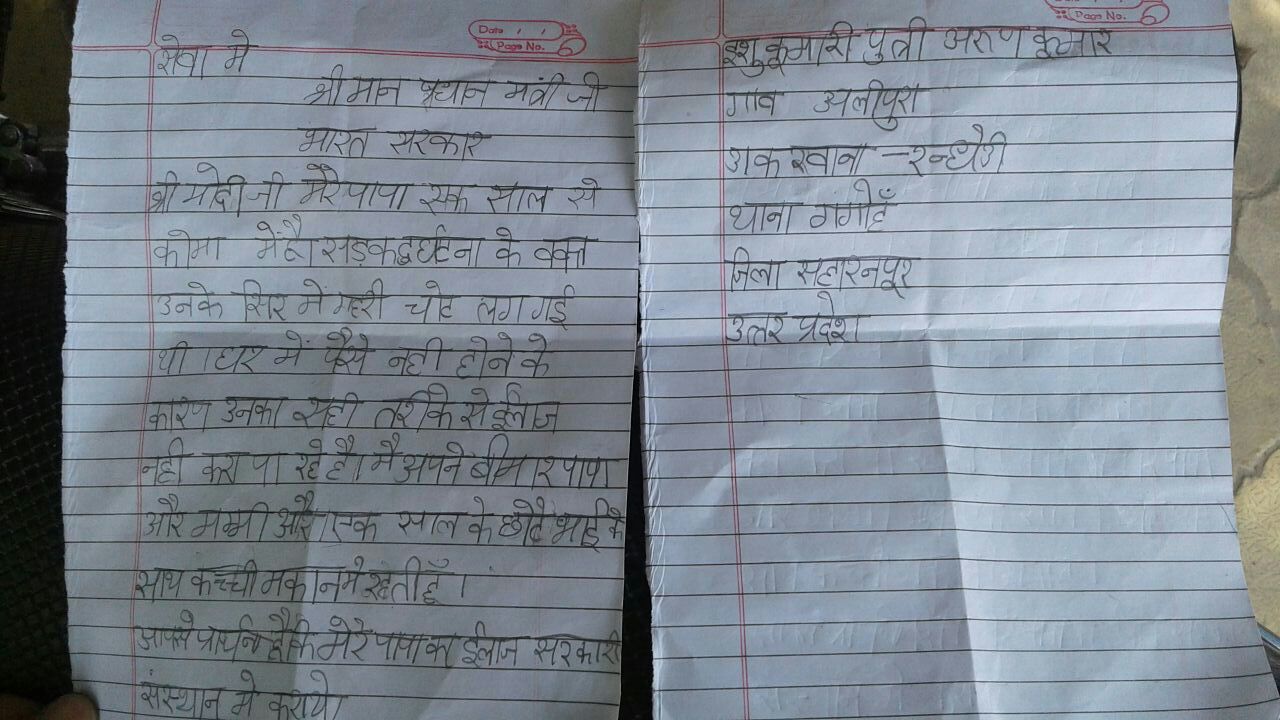 Date
Page No.
सेवा मे
श्री मान प्रधान मंत्री जी
भारत सरकार
श्री मोदी जी मेरे पापा एक साल से
कोमा में है सड़क दुर्घटना के वक्त
उनके सिर में गहरी चोट लग गई
थी । घर में पैसे नही होने के
कारण उनका सही तरीके से ईलाज
नही करा पा रहे है। मै अपने बीमार पापा
और मम्मी और एक साल के छोटे भाई के
साथ कच्ची मकान मे रहती हूँ ।
आपसे प्रार्थना है कि मेरे पापा का ईलाज सरकारी
संस्थान मे कराये।
Page No.
इशु कुमारी पुत्री अरुण कुमार
गाव अलीपुरा
डाक खाना - रन्धेडी
थाना गंगोहँ
जिला सहारनपूर
उत्तर प्रदेश